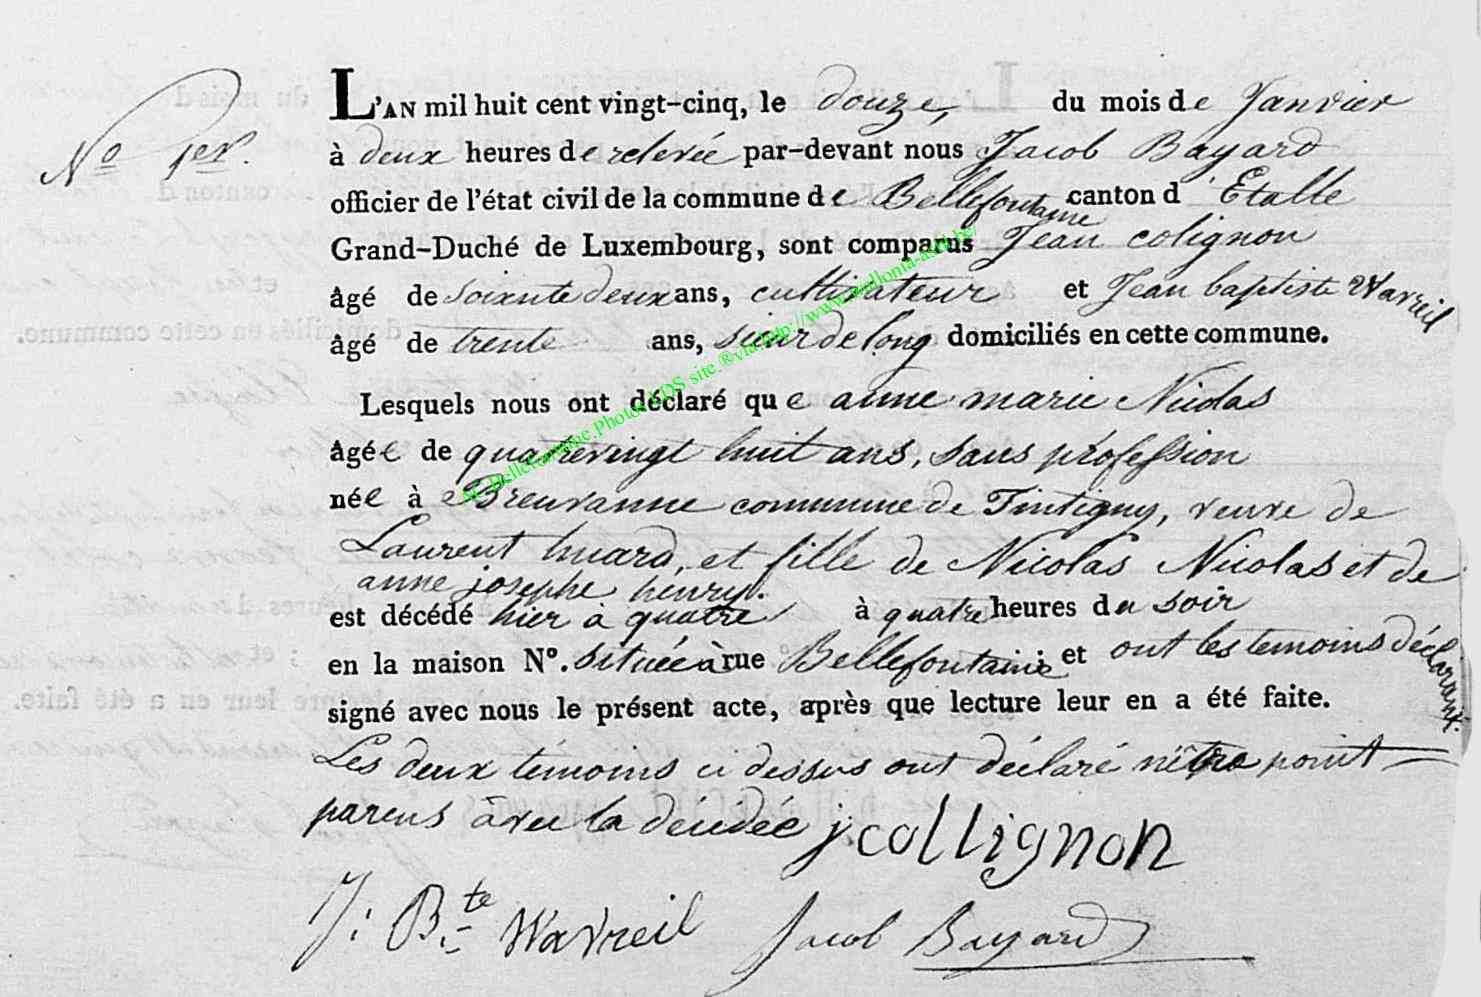 No 1er.
L'AN mil huit cent vingt-cinq, le douze, du mois de Janvier
à deux heures de relevée par-devant nous Jacob Bayard
officier de l'état civil de la commune de Bellefontaine canton d'Etalle
Grand-Duché de Luxembourg, sont comparus Jean colignon
âgé de soixnte deux ans, cultivateur et Jean baptiste Wavreil
âgé de trente ans, sieur de long domiciliés en cette commune.
Lesquels nous ont déclaré que anne marie Nicolas
âgée de quatrevingt huit ans, sans profession
née à Breuvanne commune de Tintigny, veuve de
Laurent huard, et fille de Nicolas Nicolas et de
anne josephe henry.
est décédé hier à quatre à quatre heures du soir
en la maison No. située à rue Bellefontaine et ont les temoins déclarant
signé avec nous le présent acte, après que lecture leur en a été faite.
Les deux témoins ci dessus ont déclaré nêtre point
parens àvec la décédée j collignon
J: Bte Wavreil Jacob Bayard